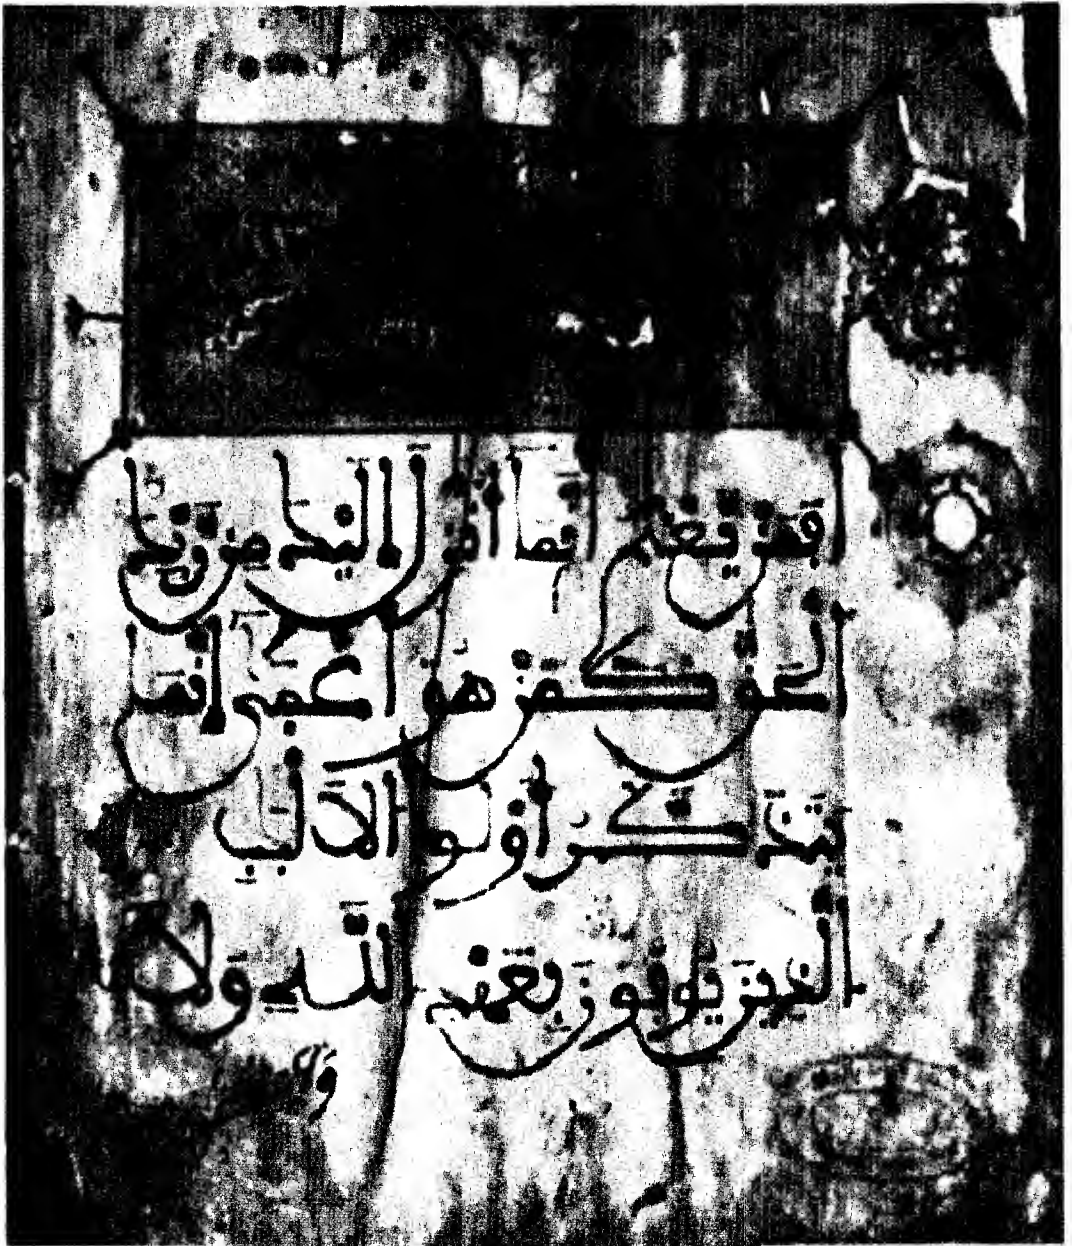 أَفَمَنْ يَعْلَمُ أَنَّمَا أُنْزِلَ إِلَيْكَ مِنْ رَبِّكَ
الْحَقُّ كَمَنْ هُوَ أَعْمَى إِنَّمَا
يَتَذَكَّرُ أُولُوا الْأَلْبَبِ
الَّذِينَ يُوفُونَ بِعَهْدِ اللَّهِ وَلَا